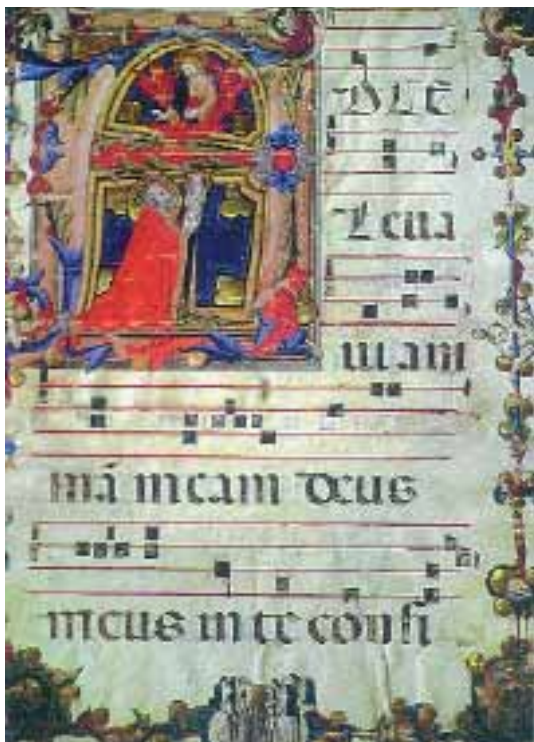 AD TE
Leua
ui ani
mā meam deus
meus in te cōnfi